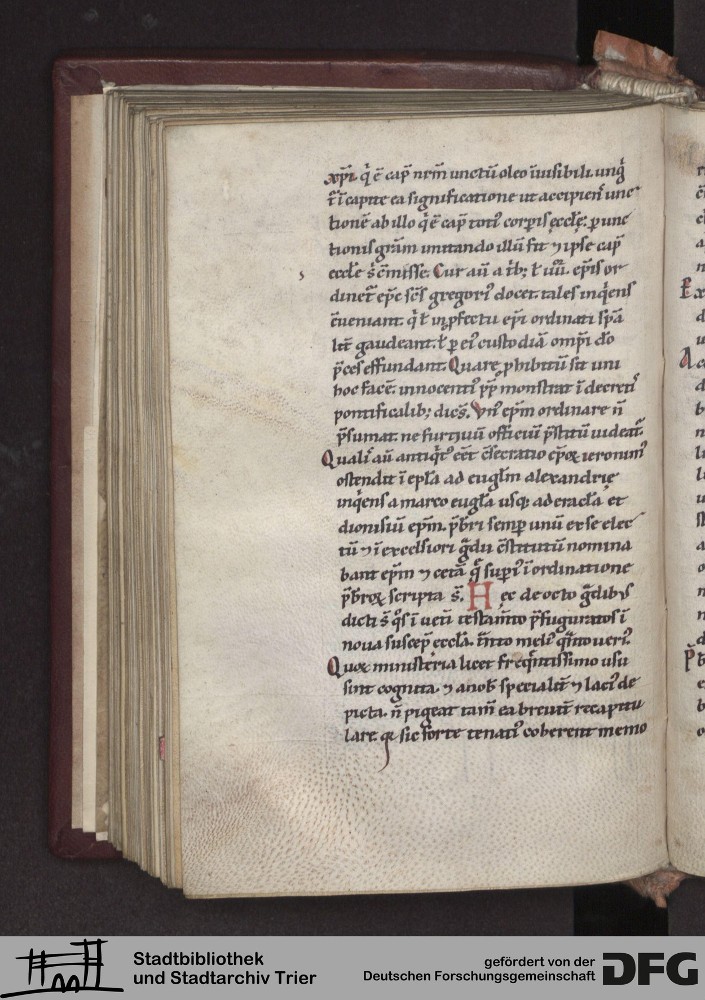 xp̄i. q̇ ē cap̄ nrm̄ unctū oleo īuisibili. ung̾
t̄ ī capite ea significatione ut accipien̄ unc
tionē ab illo q̇ ē cap̄ toti᾽ corp̄is ęccl̄ę. p unc
tionis gr̄am imitando illū fit ⁊ ipse cap̄
eccl̄e s̄ c̄misse. Cur aū a t̄b; ł
dinet̄ ep̄c sc̄s gregori᾽ docet. tales inq̇ens
c̄ueniant. q̇ ł in ꝓfectu ep̄i ordinati sp̄a
lit̄ gaudeant. ł ꝓ ei᾽ custodia om̄pi dō
p̄ces effundant. Quare ꝓhibitū sit uni
hoc facē. innocenti᾽ pp̄ monstrat ī decreti᾽
pontificalib; dic̄s. Vn᾽ ep̄m ordinare n̄
p̄sumat. ne furtiuū officiū p̄stitū uideat᾽.
Quali᾽ aū antiq̇t᾽ eēt c̄secratio ep̄oꝝ ieronim᾽
ostendit ī epl̄a ad eugl̄m alexandrie
inq̇ens a marco eugl̄a usq; ad eracl̄a et
dionisiū ep̄m. p̄bri semp̄ unū ex se elec
tū ⁊ ī excelsiori g̾du c̄stitutū nomina
bant ep̄m ⁊ cet̄a q̄ sup᾽i᾽ ī ordinatione
p̄broꝝ scripta s̄. Hec de octo g̾dib᾽s
dicti s̄ q̇s ī uet̄i testam̄to p̄figuratos ī
noua suscep̄ eccl̄a. t̄nto meli᾽ q̇nto ueri᾽.
Quoꝝ ministeria licet freq̇ntissimo usu
sint cognita. ⁊ a nob̄ specialit̄ ⁊ laci᾽ de
picta. n̄ pigeat tam̄ ea breuit̄ recapitu
lare. q̨ sic forte tenaci᾽ coherent memo
Stadtbibliothek
und Stadtarchiv Trier
gefördert von der
Deutschen Forschungsgemeinschaft
DFG